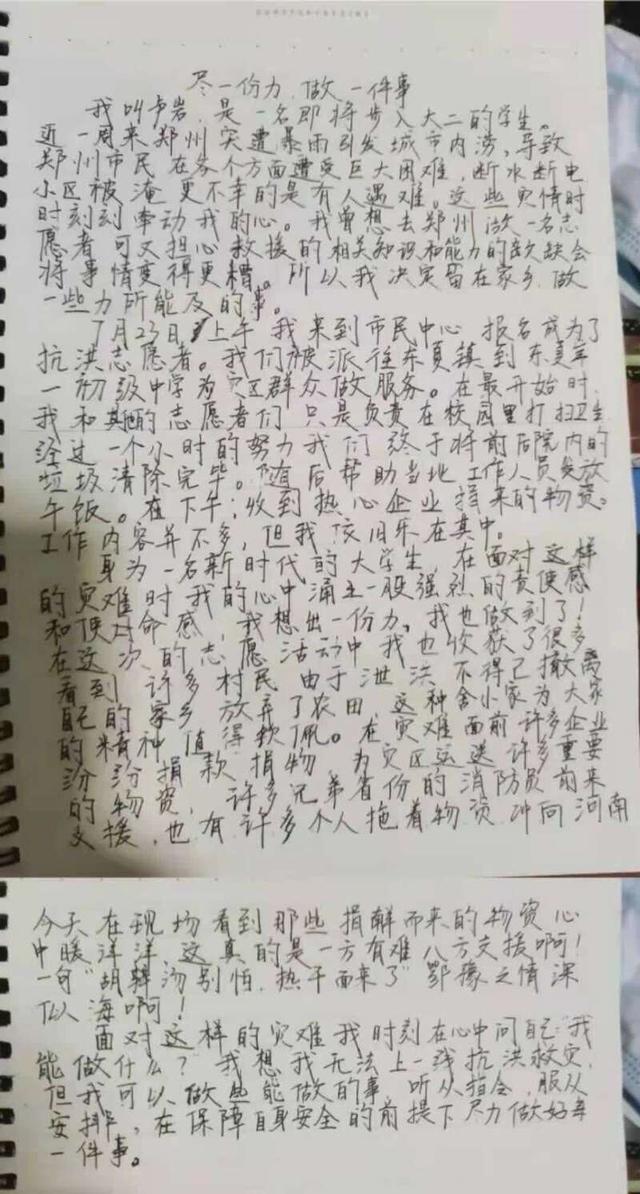 尽一份力 做一件事
我叫卢岩，是一名即将步入大二的学生。
近一周来郑州突遭暴雨引发城市内涝，导致
郑州市民在各个方面遭受巨大困难，断水断电
小区被淹 更不幸的是有人遇难。这些灾情时
时刻刻牵动我的心。我曾想去郑州做一名志
愿者 可又担心救援的相关知识和能力的欠缺会
将事情变得更糟。所以我决定留在家乡 做
一些力所能及的事。
7月23日 上午 我来到市民中心 报名成为了
抗洪志愿者。我们被派往东夏镇到东夏
一初级中学为灾区群众做服务。在最开始时
我和其他的志愿者们 只是负责在校园里打扫卫生
经过一个小时的努力我们终于将前后院内的
垃圾清除完毕。随后帮助当地工作人员发放
午饭。在下午，收到热心企业捐来的物资。
工作内容并不多，但我依旧乐在其中。
身为一名新时代的大学生，在面对这样
的灾难时 我的心中涌上一股强烈的责使感
和使命感，我想出一份力。我也做到了！
在这次的志愿活动中 我也收获了很多
看到 许多村民 由于泄洪 不得已撤离
自己的家乡 放弃了农田，这种舍小家为大家
的精神值得钦佩。在灾难面前 许多企业
汾汾捐款捐物 为灾区运送许多重要
的物资，许多兄弟省份的消防员前来
支援，也有许多个人拖着物资 冲向河南
今天在现场看到那些捐献而来的物资心
中暖洋洋，这真的是一方有难八方支援啊！
一句"胡辣汤别怕，热干面来了"鄂豫之情深
似海啊！
面对这样的灾难 我时刻在心中问自己"我
能做什么？"我想我无法上一线抗洪救灾，
但我可以做些能做的事 听从指令，服从
安排，在保障自身安全的前提下尽力做好每
一件事。